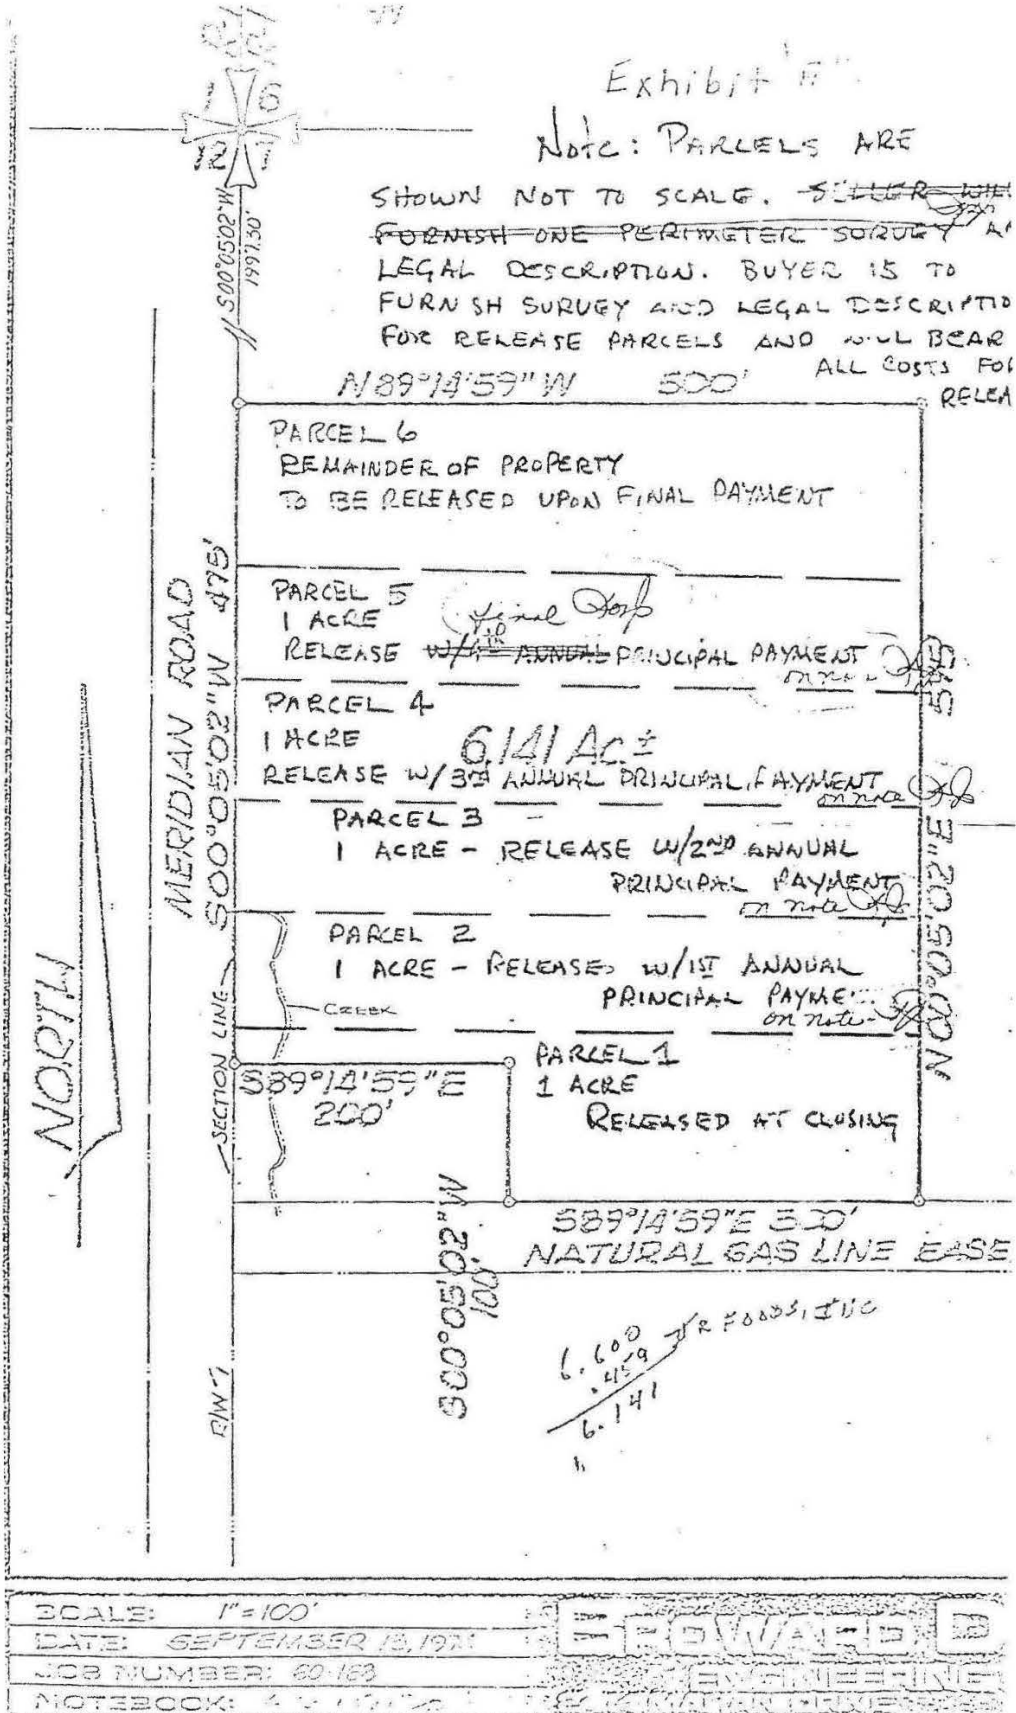 Exhibit "A"
Note: PARCELS ARE
SHOWN NOT TO SCALE. SELLER WILL
FURNISH ONE PERIMETER SURVEY
LEGAL DESCRIPTION. BUYER IS TO
FURNSH SURVEY AND LEGAL DESCRIPTIO
FOR RELEASE PARCELS AND WILL BEAR
ALL COSTS FOR
RELEA
1 6
12 7
S00°05'02"W
1997.30'
N89°14'59"W 500'
PARCEL 6
REMAINDER OF PROPERTY
TO BE RELEASED UPON FINAL PAYMENT
PARCEL 5
1 ACRE
final
RELEASE W/4th ANNUAL PRINCIPAL PAYMENT
on note
PARCEL 4
1 ACRE
6.141 AC.±
RELEASE W/3RD ANNUAL PRINCIPAL PAYMENT
on note
PARCEL 3
1 ACRE - RELEASE W/2ND ANNUAL
PRINCIPAL PAYMENT
on note
PARCEL 2
1 ACRE - RELEASED W/1ST ANNUAL
PRINCIPAL PAYME
on note
PARCEL 1
1 ACRE
RELEASED AT CLOSING
MERIDIAN ROAD
S00°05'02"W 475'
N00°05'02"E 575
NORTH
SECTION LINE
CREEK
S89°14'59"E
200'
S00°05'02"W
100'
S89°14'59"E 300'
NATURAL GAS LINE EASE
R/W
6.600
.459
6.141
FOODS, INC
SCALE: 1"=100'
DATE: SEPTEMBER 13, 197
JOB NUMBER: 60-168
NOTEBOOK:
BROWARD
ENGINEERING